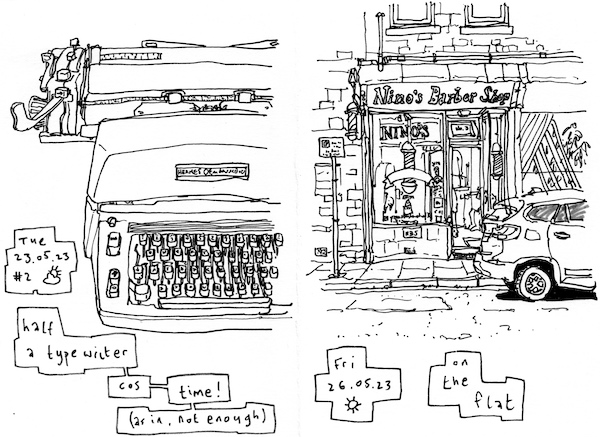 Tue
23.05.23
#2
half
a typewriter
cos
time!
(as in, not enough)
Nino's Barber Shop
NINO'S
Fri
26.05.23
on
the
flat